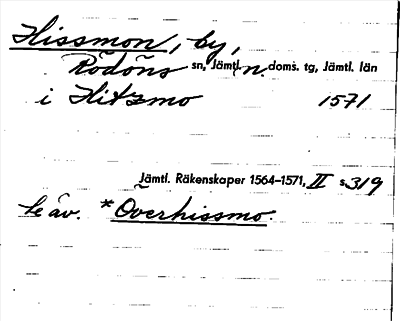 Hissmon, by,
Rödöns sn, Jämtl. n. doms. tg, Jämtl. län
i Hitzmo 1571
Jämtl. Räkenskaper 1564–1571, II s. 319
Se äv. *Överhissmo.